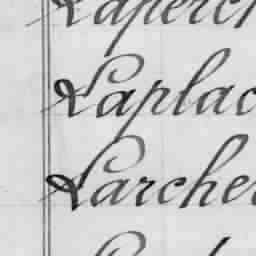 Laperch
Laplac
Larche